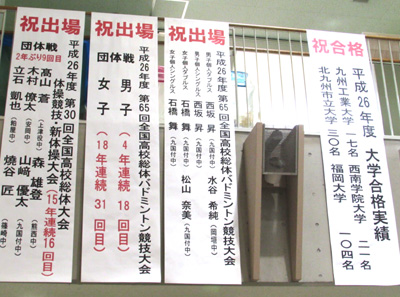 祝合格
平成26年度 大学合格実績
九州工業大学 一七名 西南学院大 二一名
北九州市立大学 三〇名 福岡大学 一〇四名
祝出場
平成26年度 第65回全国高校総体バドミントン競技大会
男子個人ダブルス 西坂 昇(九国付中) 水谷 希純(岡垣中)
男子個人シングルス 西坂 昇(九国付中)
女子個人ダブルス 石橋 舞(九国付中) 松山 奈美(九国付中)
女子個人シングルス 石橋 舞(九国付中)
祝出場
平成26年度 第65回全国高校総体バドミントン競技大会
団体戦 男子(4年連続18回目)
団 女子(18年連続31回目)
祝出場
平成26年度 第30回全国高校総体大会
体操競技・新体操大会(15年連続16回目)
団体戦
2年ぶり9回目
高山 蒼 森 雄登(熊西中)
木村 僚太 山﨑 優太(九国付中)
立石 凱也(粕屋中) 焼谷 匠(篠崎中)